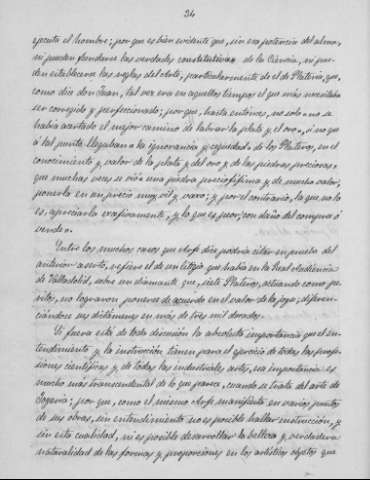 34
ejecuta el hombre; por que es bien evidente que, sin esa potencia del alma,
ni pueden fundarse las verdades constitutivas de la Ciencia, ni pue-
den establecerse las reglas del Arte, particularmente de el de Platería, que,
como dice don Juan, tal vez era en aquellos tiempos el que más necesitaba
ser corregido y perfeccionado; por que, hasta entonces, no solo no se
había acertado el mejor camino de labrar la plata y el oro, si no que
á tal punto llegaban la ignorancia y ceguedad de los Plateros, en el
conocimiento y valor de la plata y del oro y de las piedras preciosas,
que muchas veces se vió a una piedra preciosísima y de mucho valor,
ponerla en un precio muy vil y bajo; y por el contrario, la que no lo
es, apreciarla excesivamente, y lo que es peor, con daño del compra ó
vende.
Entre los muchos casos que Arfe dice podría citar en prueba del
anterior aserto, refiere el de un litigio que había en la Real Audiencia
de Valladolid, sobre un diamante que, siete Plateros, actuando como pe-
ritos, no lograron ponerse de acuerdo en el valor de la joya; diferen-
ciándose sus dictámenes en más de tres mil ducados.
Si fuera está de toda discusión la absoluta importancia que el en-
tendimiento y la instrucción tienen para el ejercicio de todas las profe-
siones científicas y de todas las industriales artes, esa importancia es
mucho más transcendental de lo que parece, cuando se trata del arte de
Joyería; por que, como el mismo Arfe manifiesta en varios puntos
de sus obras, sin entendimiento no es posible hallar instrucción, y
sin esta cualidad, ni es posible desarrollar la belleza y verdadera
naturalidad de las formas y proporciones en los artísticos objetos que